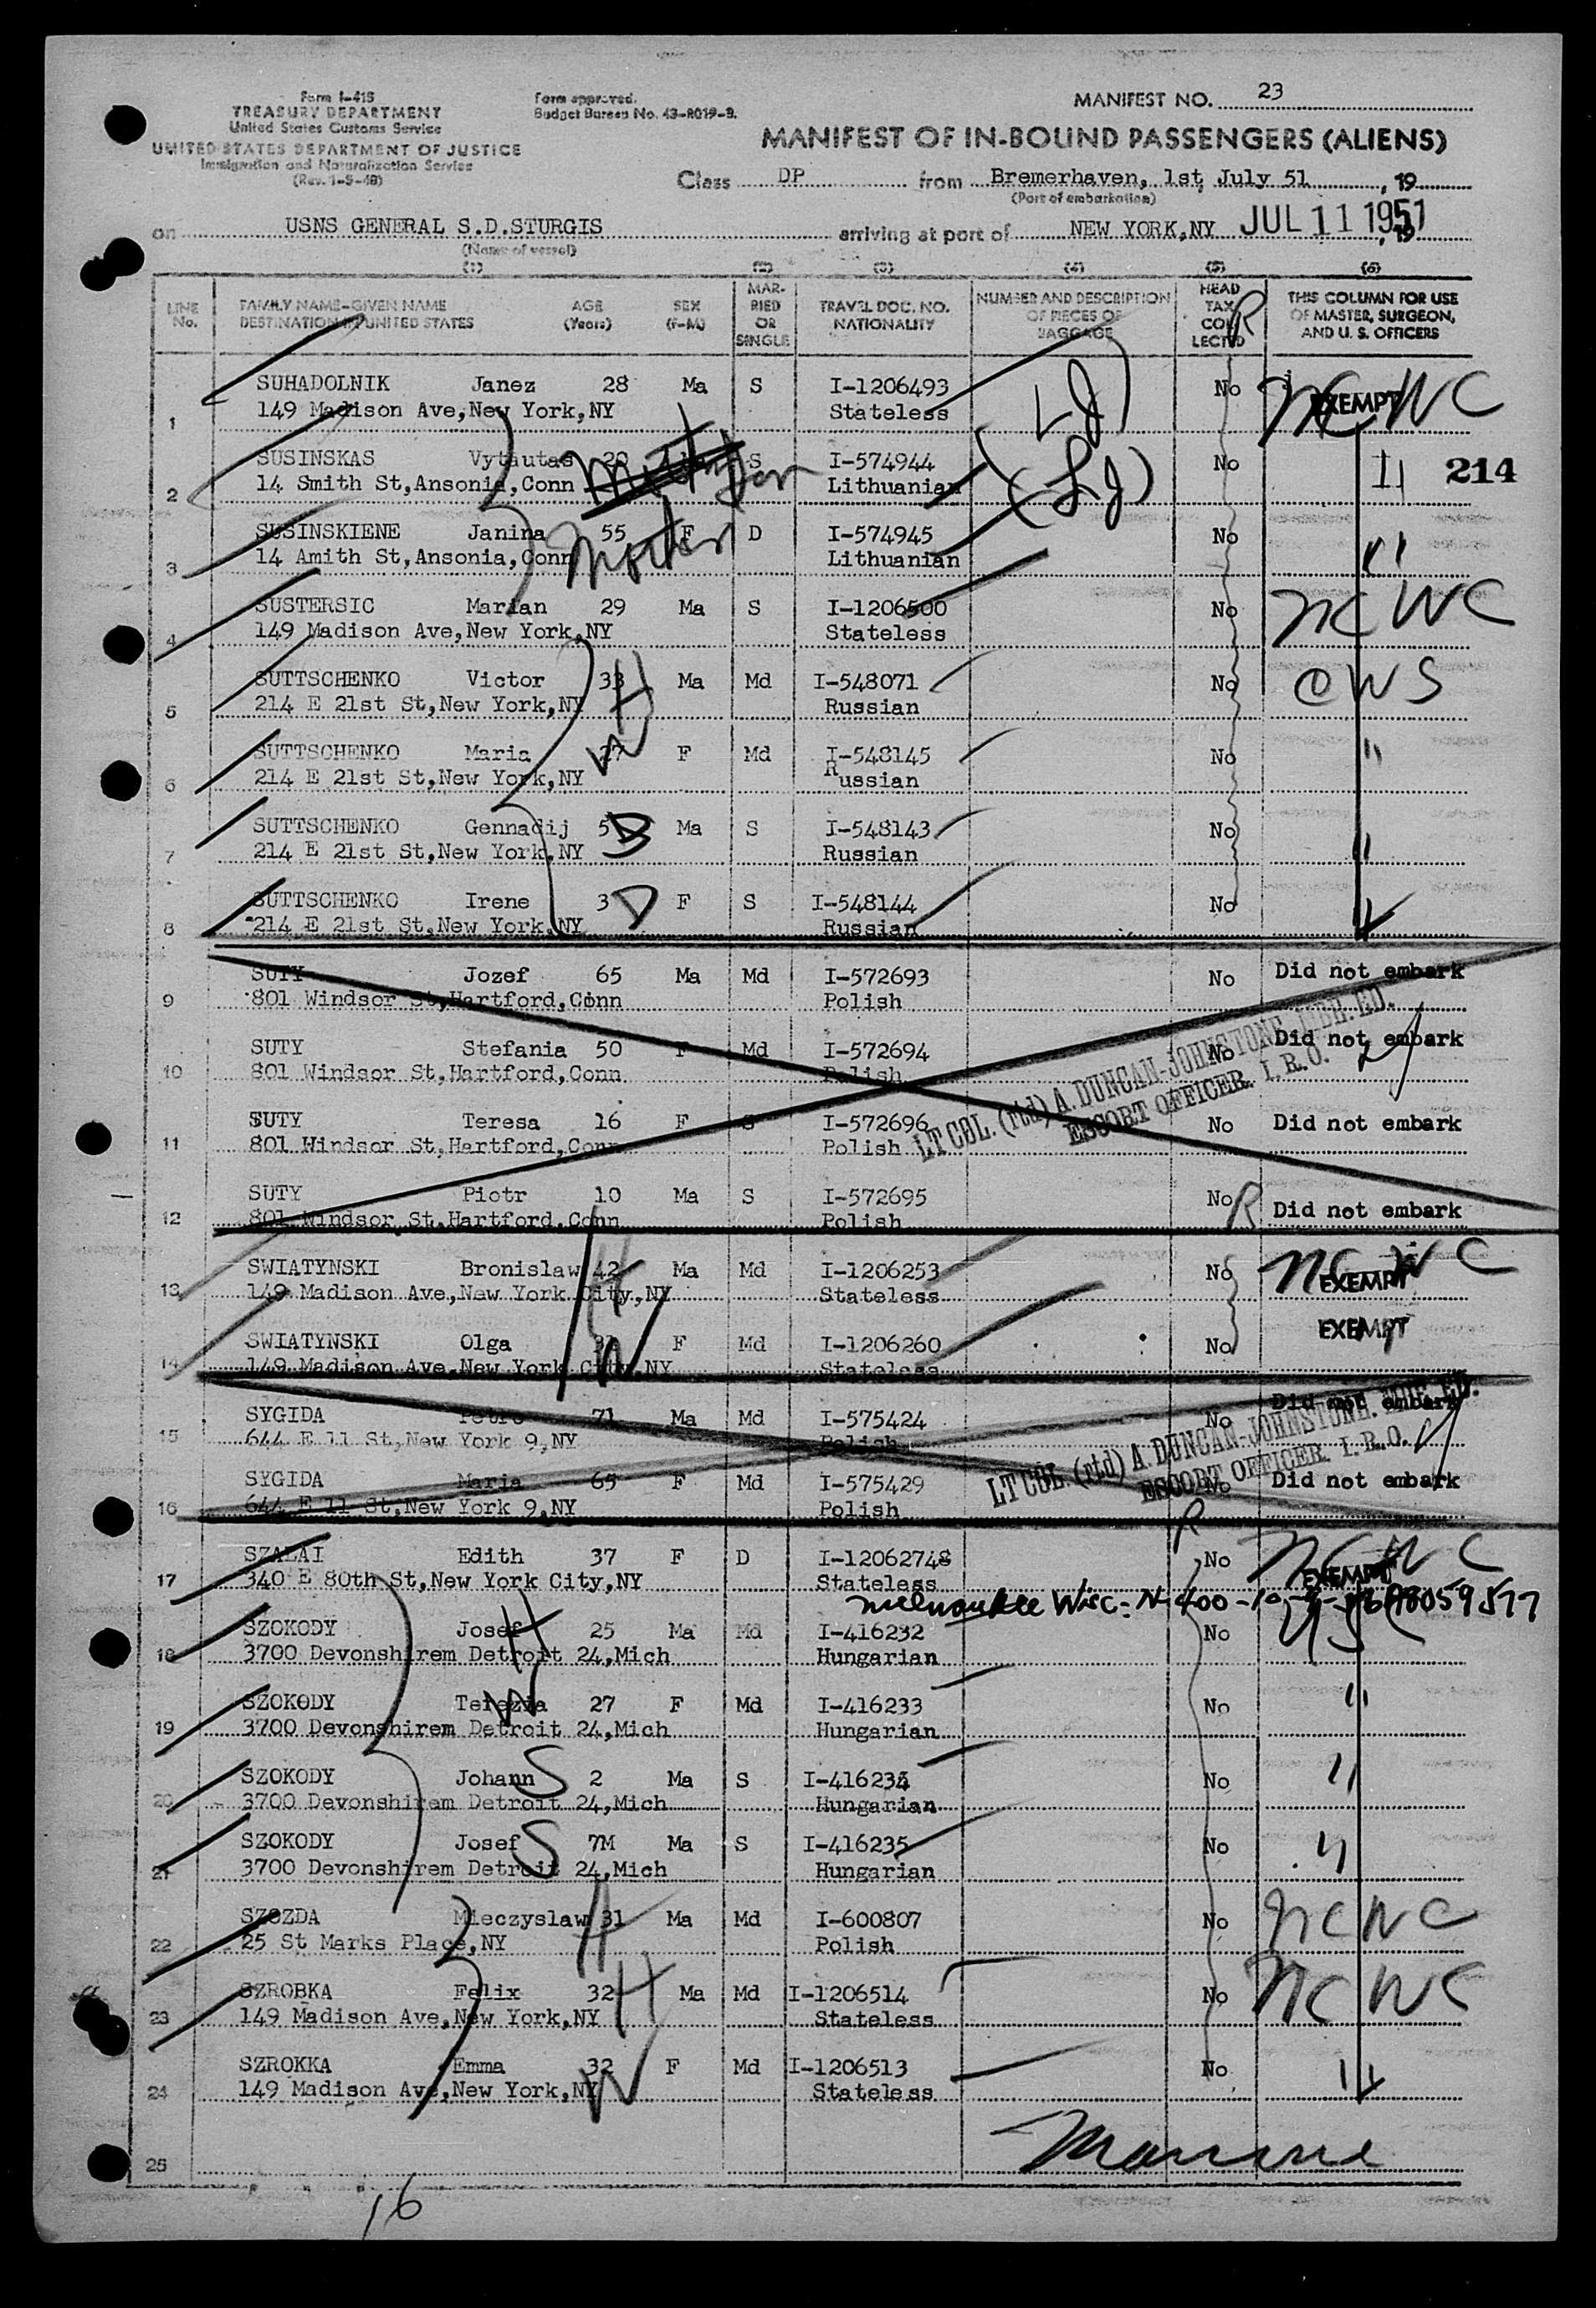 Form I-415
TREASURY DEPARTMENT
United States Customs Service
UNITED STATES DEPARTMENT OF JUSTICE
Immigration and Naturalization Service
(Rev. 1-5-48)
Form approved.
Budget Bureau No. 43-R019-3.
MANIFEST NO. 23
MANIFEST OF IN-BOUND PASSENGERS (ALIENS)
Class DP from Bremerhaven, 1st, July 51, 19
(Port of embarkation)
on USNS GENERAL S.D.STURGIS arriving at port of NEW YORK,NY JUL 11 1951, 19
(Name of vessel)
(1) (2) (3) (4) (5) (6)
LINE No.
FAMILY NAME-GIVEN NAME AGE SEX
DESTINATION IN UNITED STATES (Years) (F-M)
MARRIED OR SINGLE
TRAVEL DOC. NO. NATIONALITY
NUMBER AND DESCRIPTION OF PIECES OF BAGGAGE
HEAD TAX COLLECTED
THIS COLUMN FOR USE OF MASTER, SURGEON, AND U. S. OFFICERS
R
1 SUHADOLNIK Janez 28 Ma S I-1206493 No EXEMPT NC WC
149 Madison Ave,New York,NY Stateless
2 SUSINSKAS Vytautas 20 S I-574944 No " 214
14 Smith St,Ansonia,Conn Son Lithuanian
3 SUSINSKIENE Janina 55 F D I-574945 No "
14 Amith St,Ansonia,Conn Mother Lithuanian
4 SUSTERSIC Marian 29 Ma S I-1206500 No NC WC
149 Madison Ave,New York,NY Stateless
5 SUTTSCHENKO Victor 33 H Ma Md I-548071 No
214 E 21st St,New York,NY Russian
6 SUTTSCHENKO Maria 27 W F Md I-548145 No "
214 E 21st St,New York,NY Russian
7 SUTTSCHENKO Gennadij 5 Ma S I-548143 No "
214 E 21st St,New York,NY Russian
8 SUTTSCHENKO Irene 3 D F S I-548144 No "
214 E 21st St,New York,NY Russian
9 SUTY Jozef 65 Ma Md I-572693 No Did not embark
801 Windsor St,Hartford,Conn Polish
10 SUTY Stefania 50 F Md I-572694 No Did not embark
801 Windsor St,Hartford,Conn Polish
LT COL. (rtd) A. DUNCAN-JOHNSTONE,
ESCORT OFFICER. I. R. O.
11 SUTY Teresa 16 F S I-572696 No Did not embark
801 Windsor St,Hartford,Conn Polish
12 SUTY Piotr 10 Ma S I-572695 No R Did not embark
801 Windsor St,Hartford,Conn Polish
13 SWIATYNSKI Bronislaw 42 H Ma Md I-1206253 No EXEMPT NC WC
149 Madison Ave,New York City,NY Stateless
14 SWIATYNSKI Olga W F Md I-1206260 No EXEMPT "
149 Madison Ave,New York City,NY Stateless
15 SYGIDA Petro 71 Ma Md I-575424 No Did not embark
644 E 11 St,New York 9,NY Polish
LT COL. (rtd) A. DUNCAN-JOHNSTONE,
ESCORT OFFICER. I. R. O.
16 SYGIDA Maria 65 F Md I-575429 No Did not embark
644 E 11 St,New York 9,NY Polish
R
17 SZALAI Edith 37 F D I-1206274 No EXEMPT NC WC
340 E 80th St,New York City,NY Stateless
Milwaukee Wisc
18 SZOKODY Josef H 25 Ma Md I-416232 No
3700 Devonshirem Detroit 24,Mich Hungarian
19 SZOKODY Terezia W 27 F Md I-416233 No "
3700 Devonshirem Detroit 24,Mich Hungarian
20 SZOKODY Johann S 2 Ma S I-416234 No "
3700 Devonshirem Detroit 24,Mich Hungarian
21 SZOKODY Josef S 7M Ma S I-416235 No "
3700 Devonshirem Detroit 24,Mich Hungarian
22 SZOZDA Mieczyslaw 31 H Ma Md I-600807 No NC WC
25 St Marks Place,NY Polish
23 SZROBKA Felix 32 H Ma Md I-1206514 No NC WC
149 Madison Ave,New York,NY Stateless
24 SZROKKA Emma 32 W F Md I-1206513 No "
149 Madison Ave,New York,NY Stateless
25
16